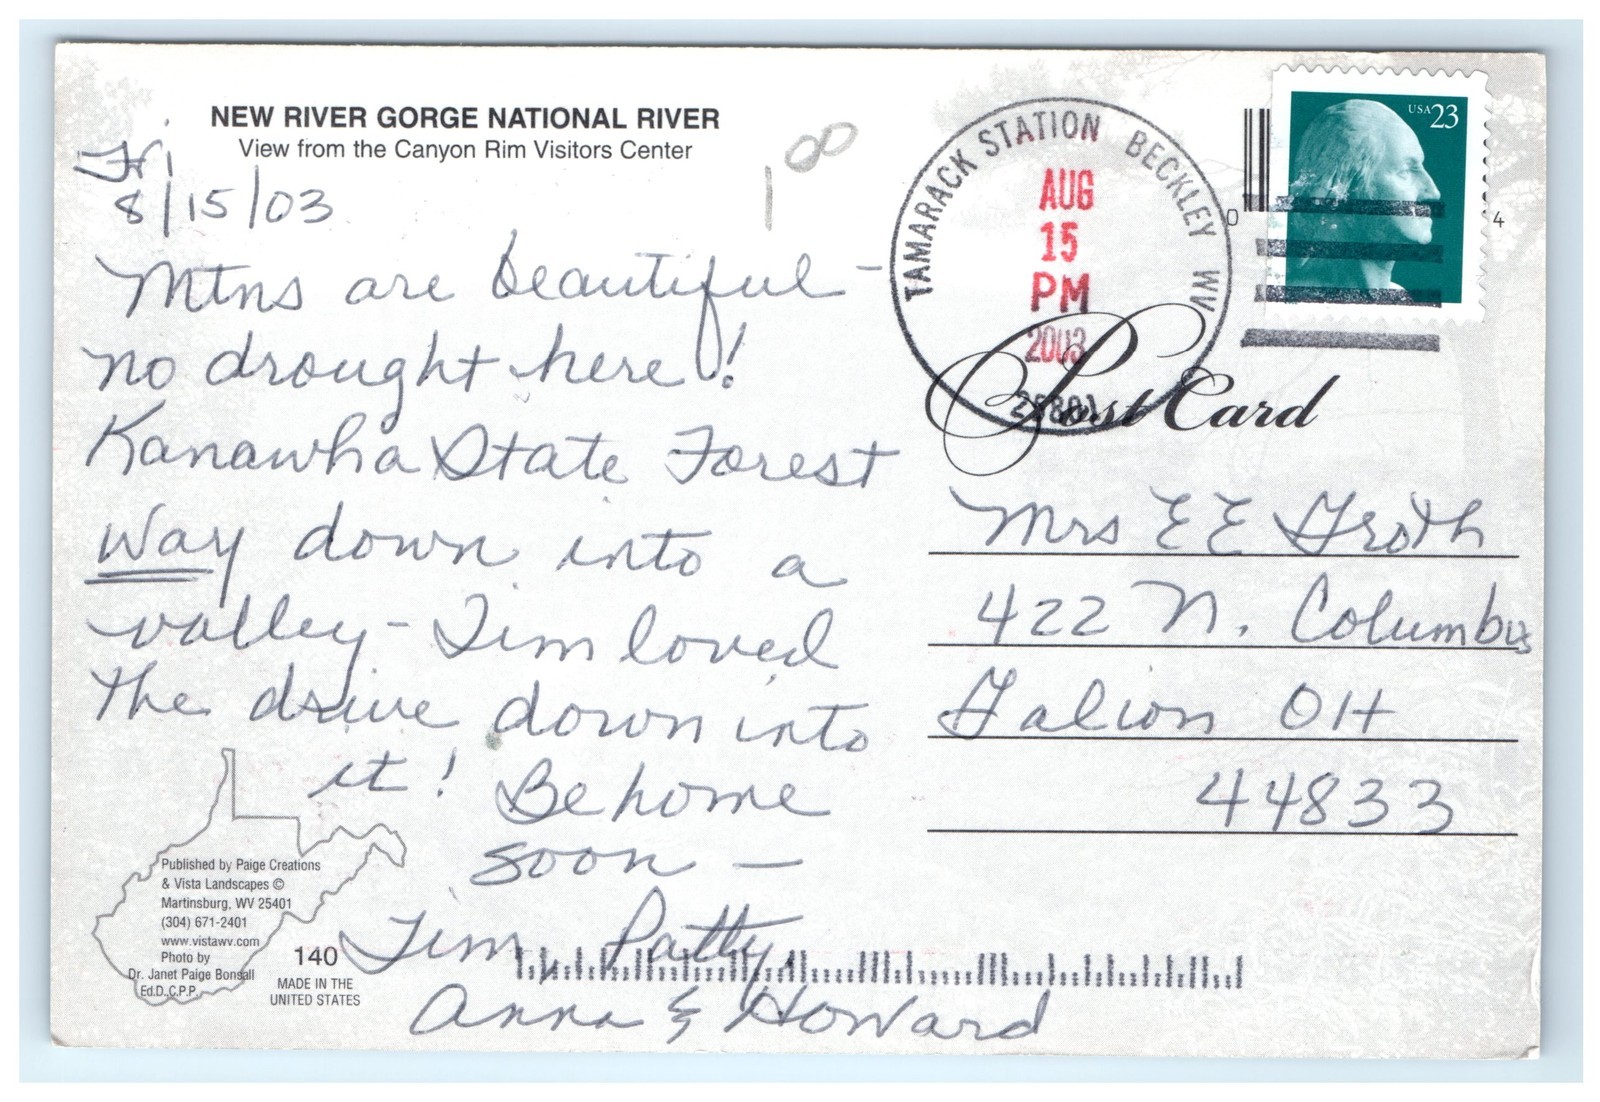 NEW RIVER GORGE NATIONAL RIVER
View from the Canyon Rim Visitors Center
Fri
8/15/03
1 00
Mtns are beautiful -
no drought here!
Kanawha State Forest
way down into a
valley - Tim loved
the drive down into
it! Be home
soon -
Tim, Patty,
Anna & Howard
Published by Paige Creations
& Vista Landscapes ©
Martinsburg, WV 25401
(304) 671-2401
www.vistawv.com
Photo by
Dr. Janet Paige Bonsall
Ed.D.,C.P.P.
140
MADE IN THE
UNITED STATES
TAMARACK STATION BECKLEY WV
AUG
15
PM
2003
25801
USA 23
0
4
Post Card
Mrs E E Groth
422 N. Columbus
Galion OH
44833